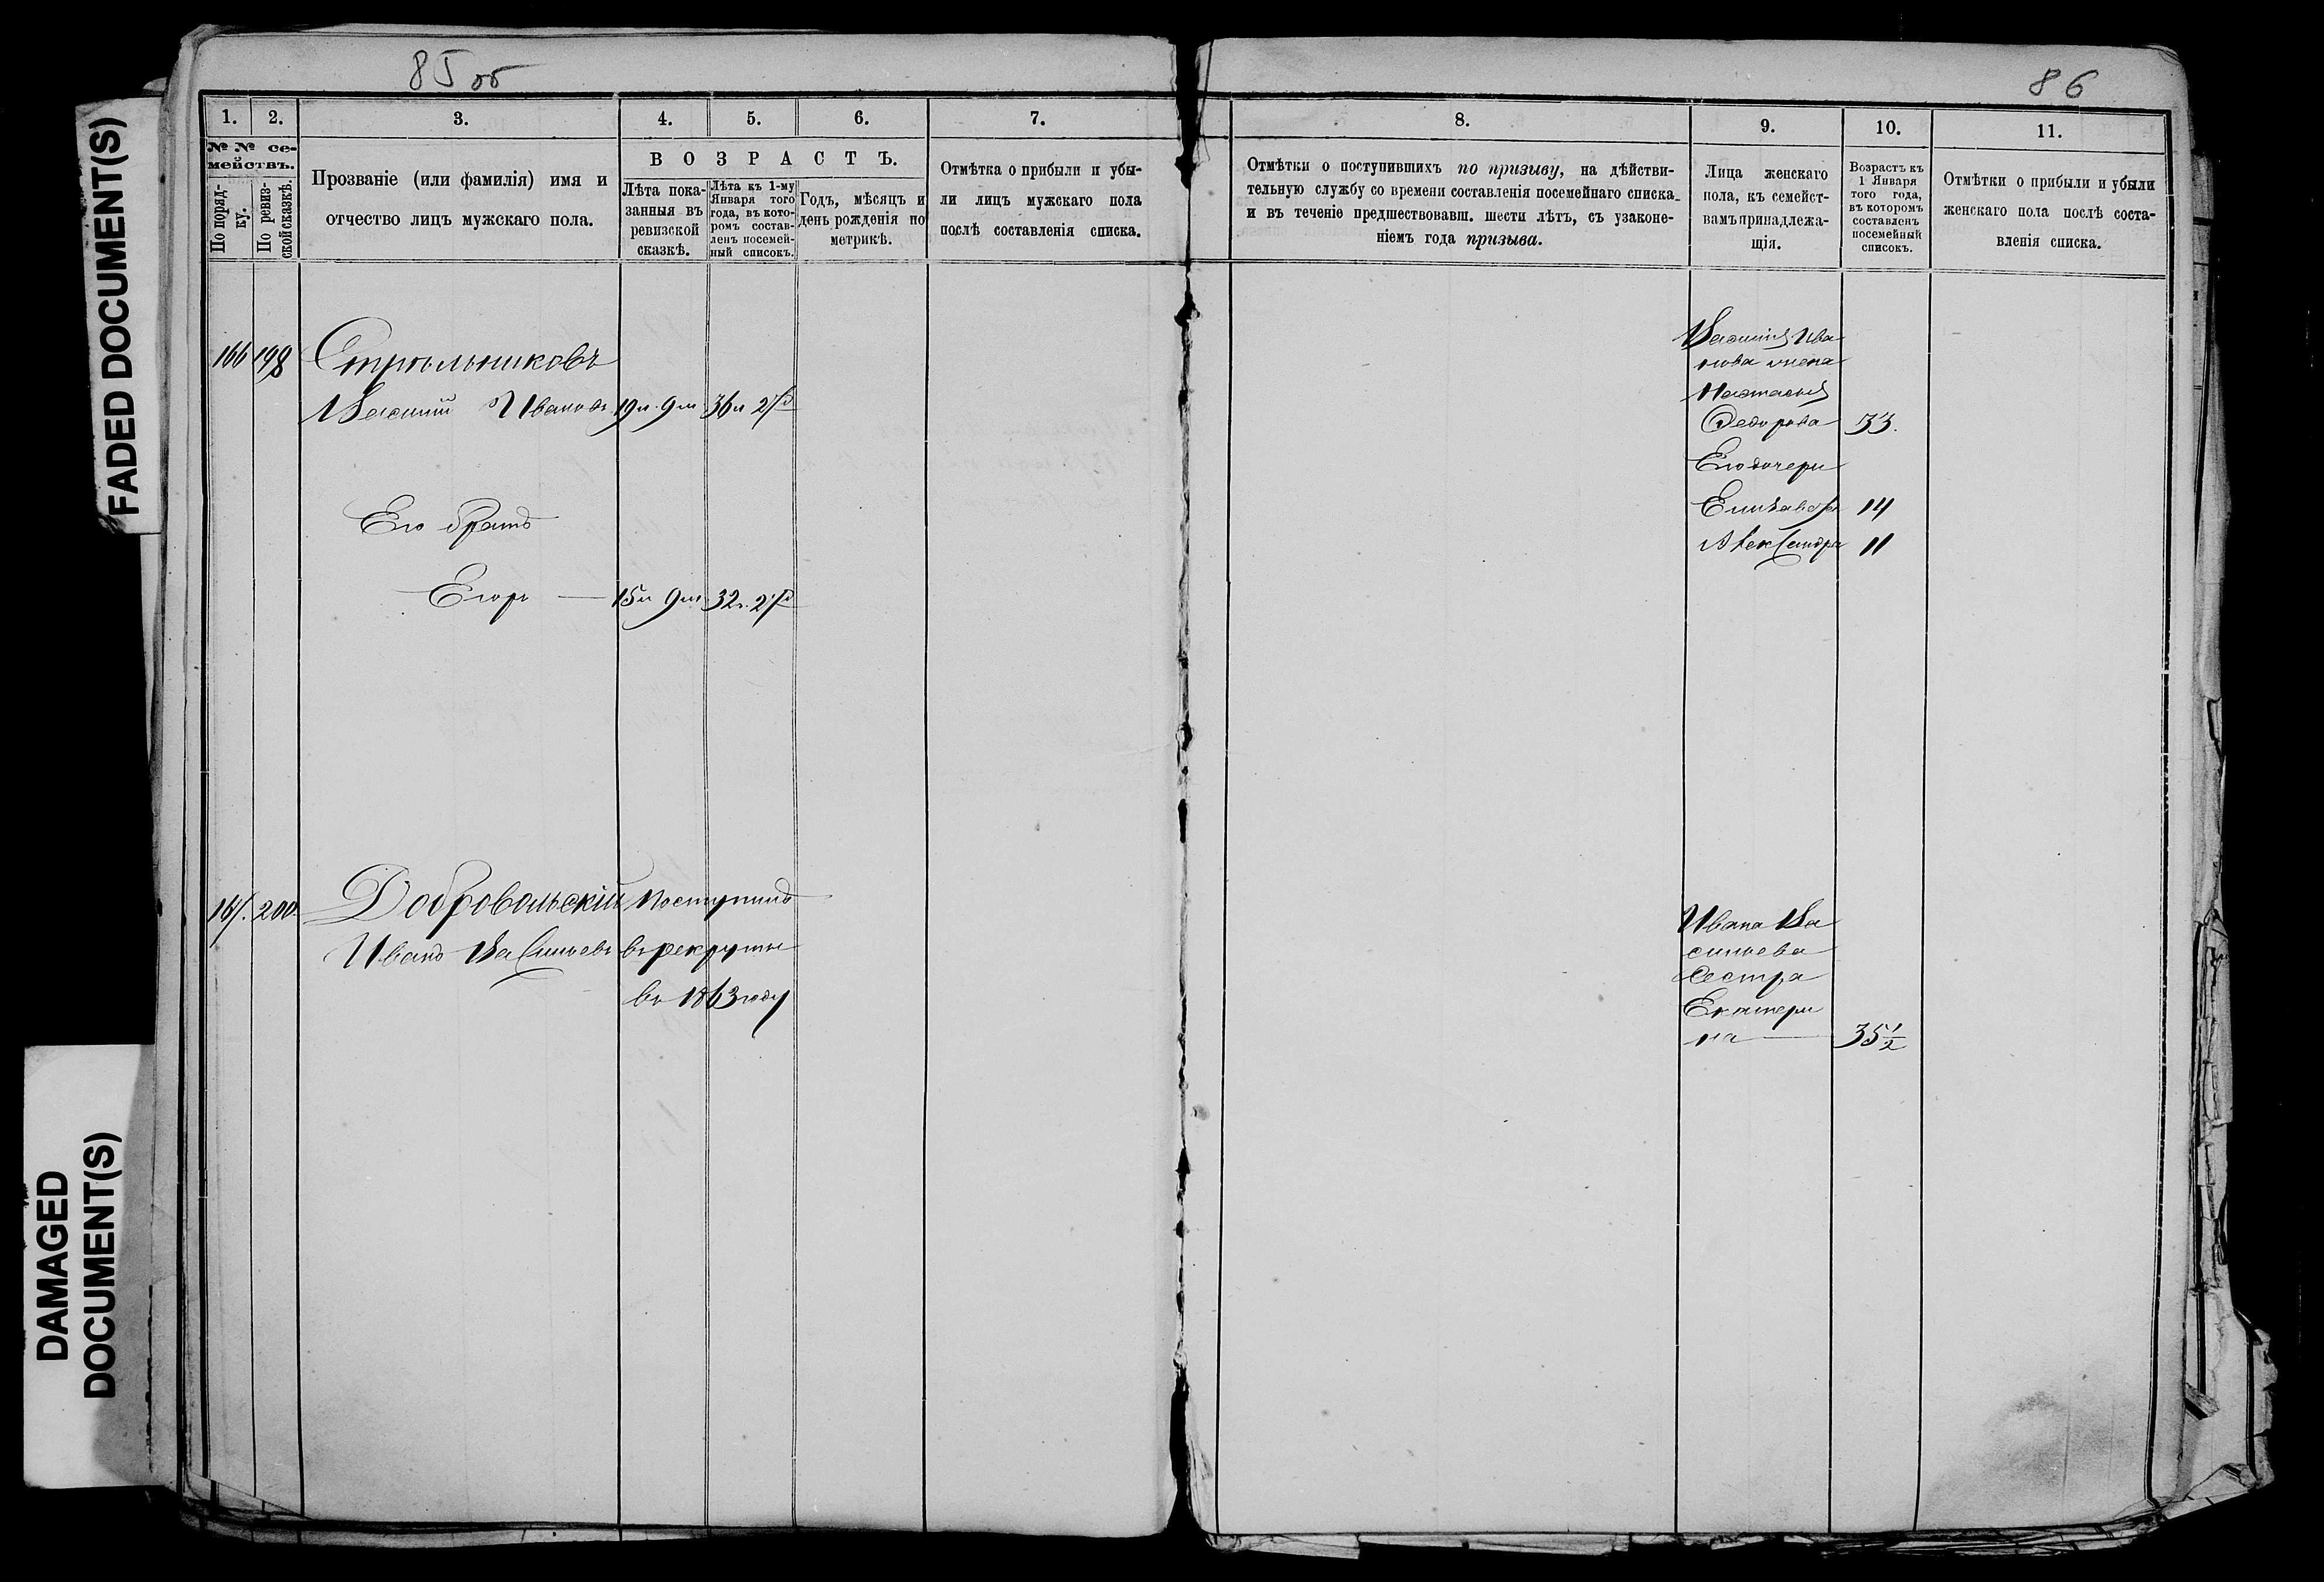 85 об
86
FADED DOCUMENT(S)
DAMAGED
DOCUMENT(S)
1.
2.
3.
4.
5.
6.
7.
8.
9.
10.
11.
№ № се-
мействъ.
По поряд-
ку.
По ревиз-
ской сказкѣ.
Прозваніе (или фамилія) имя и
отчество лицъ мужскаго пола.
ВОЗРАСТЪ.
Лѣта пока-
занныя въ
ревизской
сказкѣ.
Лѣта къ 1-му
Января того
года, въ кото-
ромъ состав-
ленъ посемей-
ный списокъ.
Годъ, мѣсяцъ и
день рожденія по
метрикѣ.
Отмѣтка о прибыли и убы-
ли лицъ мужскаго пола
послѣ составленія списка.
Отмѣтки о поступившихъ по призыву, на дѣйстви-
тельную службу со времени составленія посемейнаго списка
и въ теченіе предшествовавш. шести лѣтъ, съ узаконе-
ніемъ года призыва.
Лица женскаго
пола, къ семейст-
вамъ принадлежа-
щія.
Возрастъ къ
1 Января
того года,
въ которомъ
составленъ
посемейный
списокъ.
Отмѣтки о прибыли и убыли
женскаго пола послѣ соста-
вленія списка.
166 198 Стрѣльниковъ
Василій Ивановъ 19 л. 9 м. 36 л.
Его братъ
Егоръ — 15 л 9 м. 32 л.
Василія Ива
нова жена
Настасья
Федорова 33.
Его дочери
Елизавета 14
Александра 11
167. 200. Добровольскій Поступилъ
Иванъ Васильевъ въ рекруты
въ 1863 году
Ивана Ва
сильева
Сестра
Екатери
на — 35 1/2